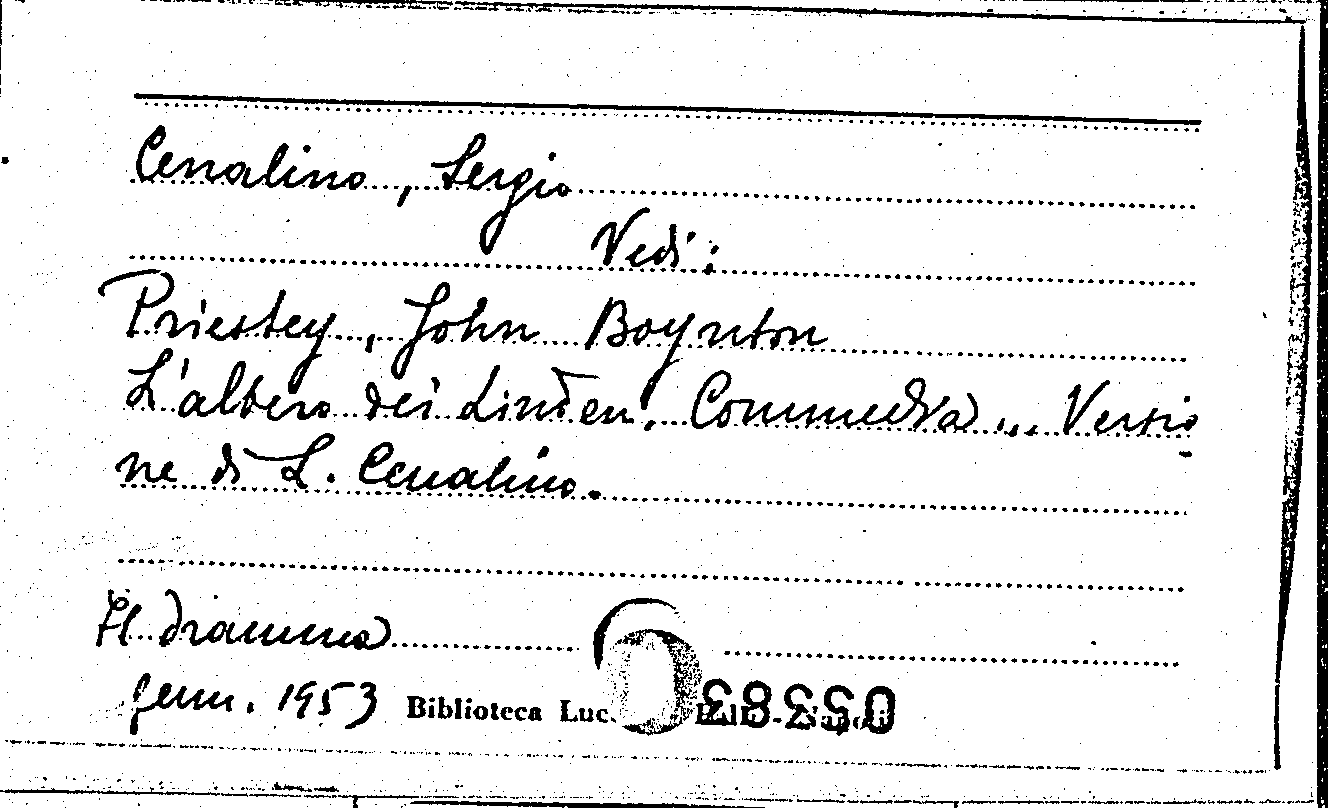 Cenalino, Sergio
Vedi:
Priestey, John Boynton
L'albero dei Linden. Commedia... Versio
ne di S. Cenalino.
Il dramma
genn. 1953 Biblioteca Luc.